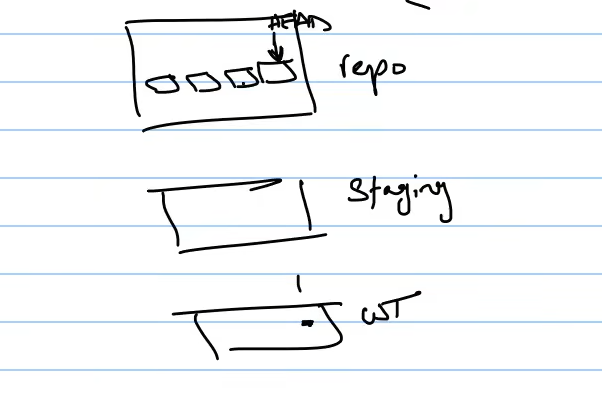 HEAD
repo
Staging
WT